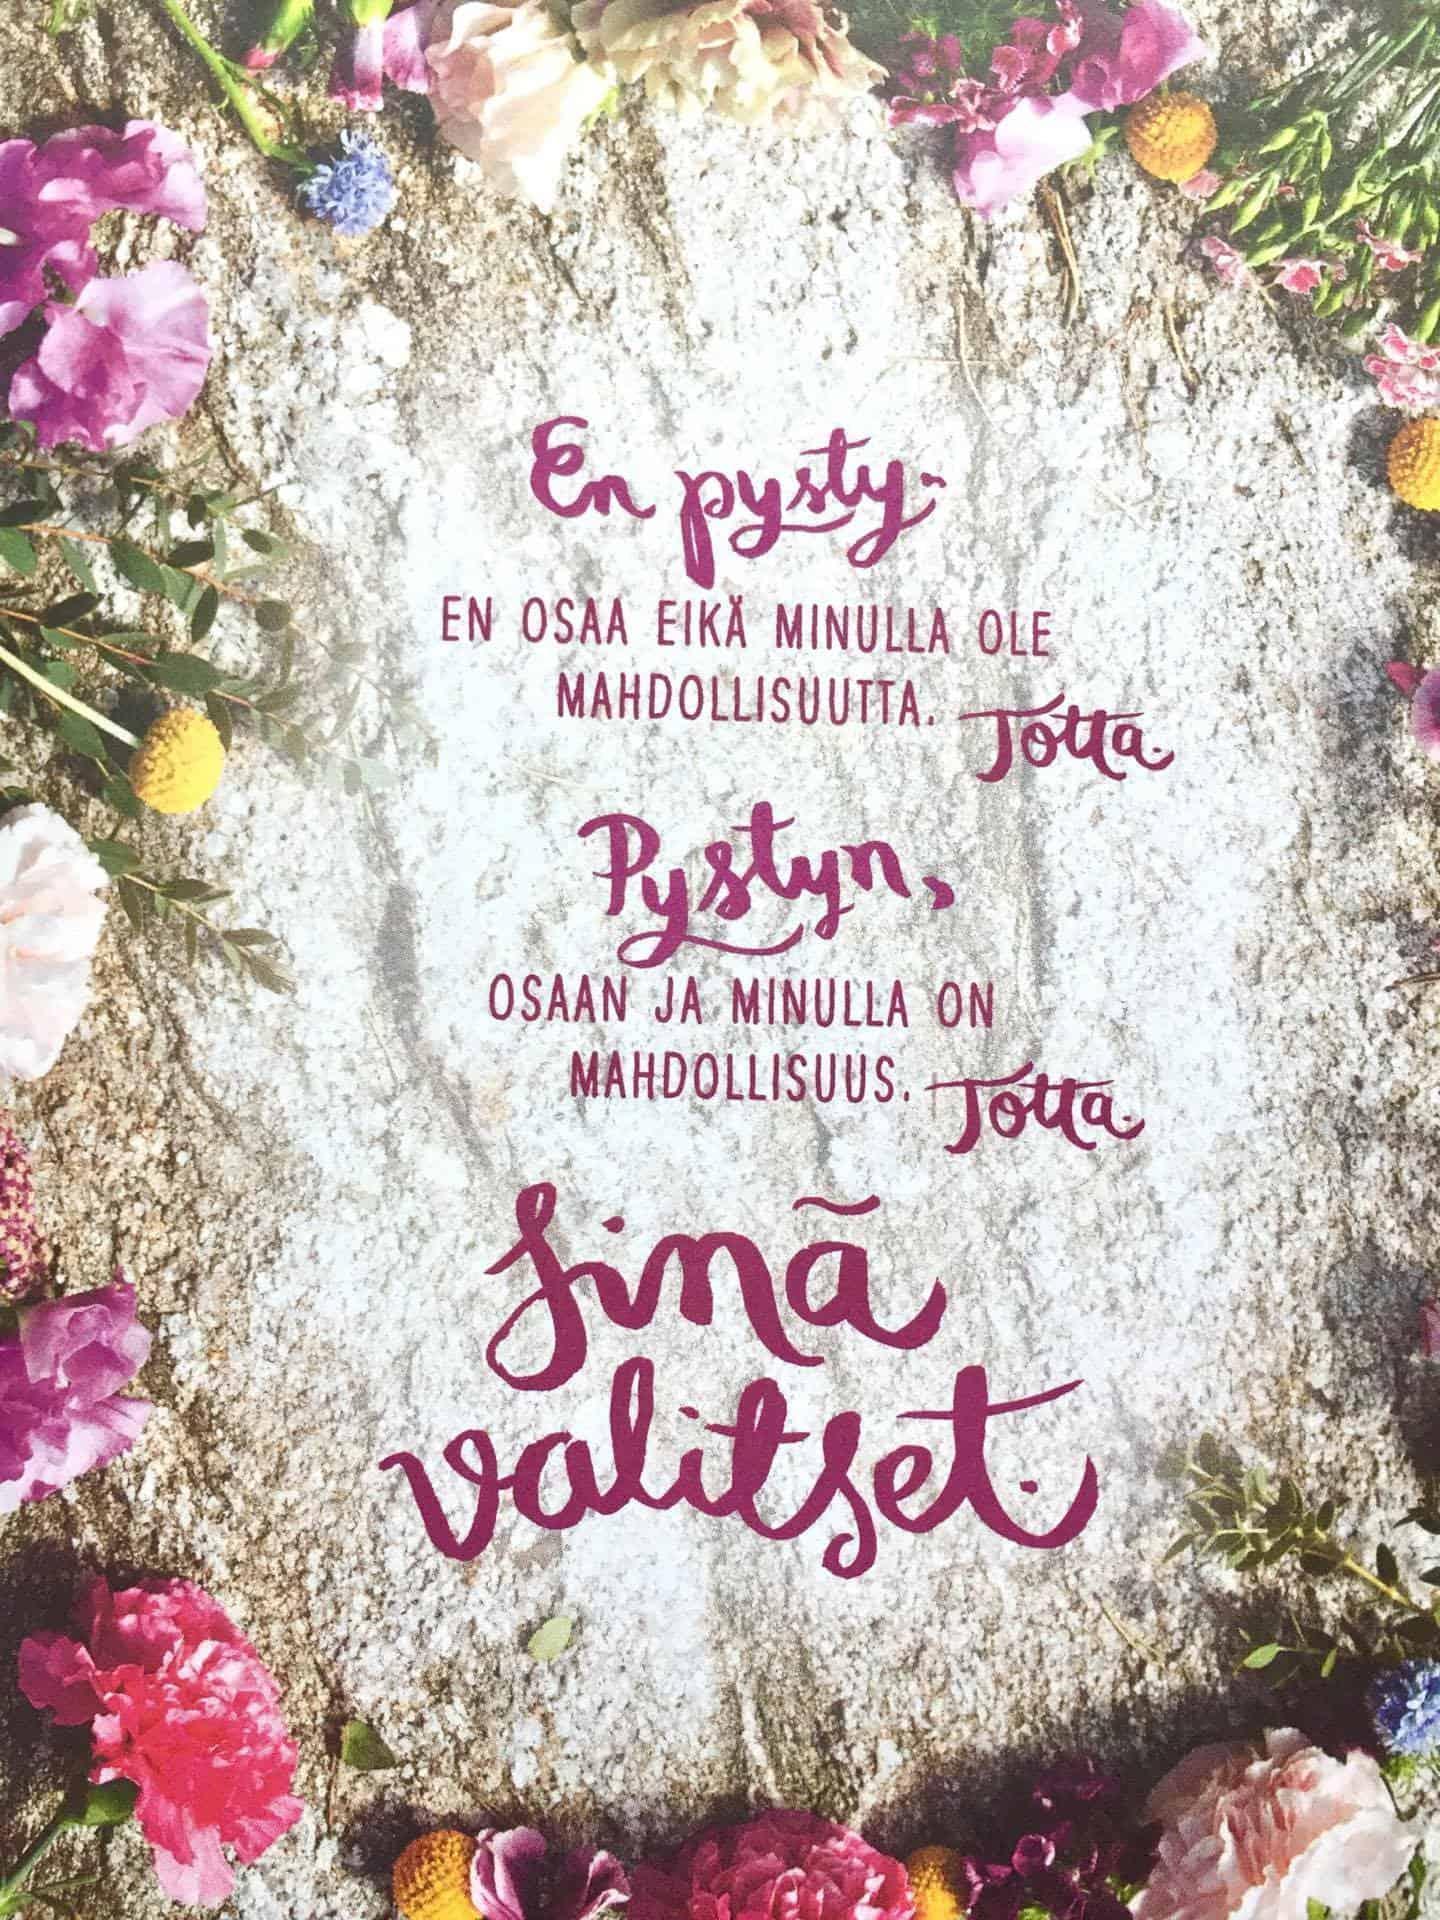 En pysty.
EN OSAA EIKÄ MINULLA OLE
MAHDOLLISUUTTA. Totta.
Pystyn,
OSAAN JA MINULLA ON
MAHDOLLISUUS. Totta.
Sinä
valitset.